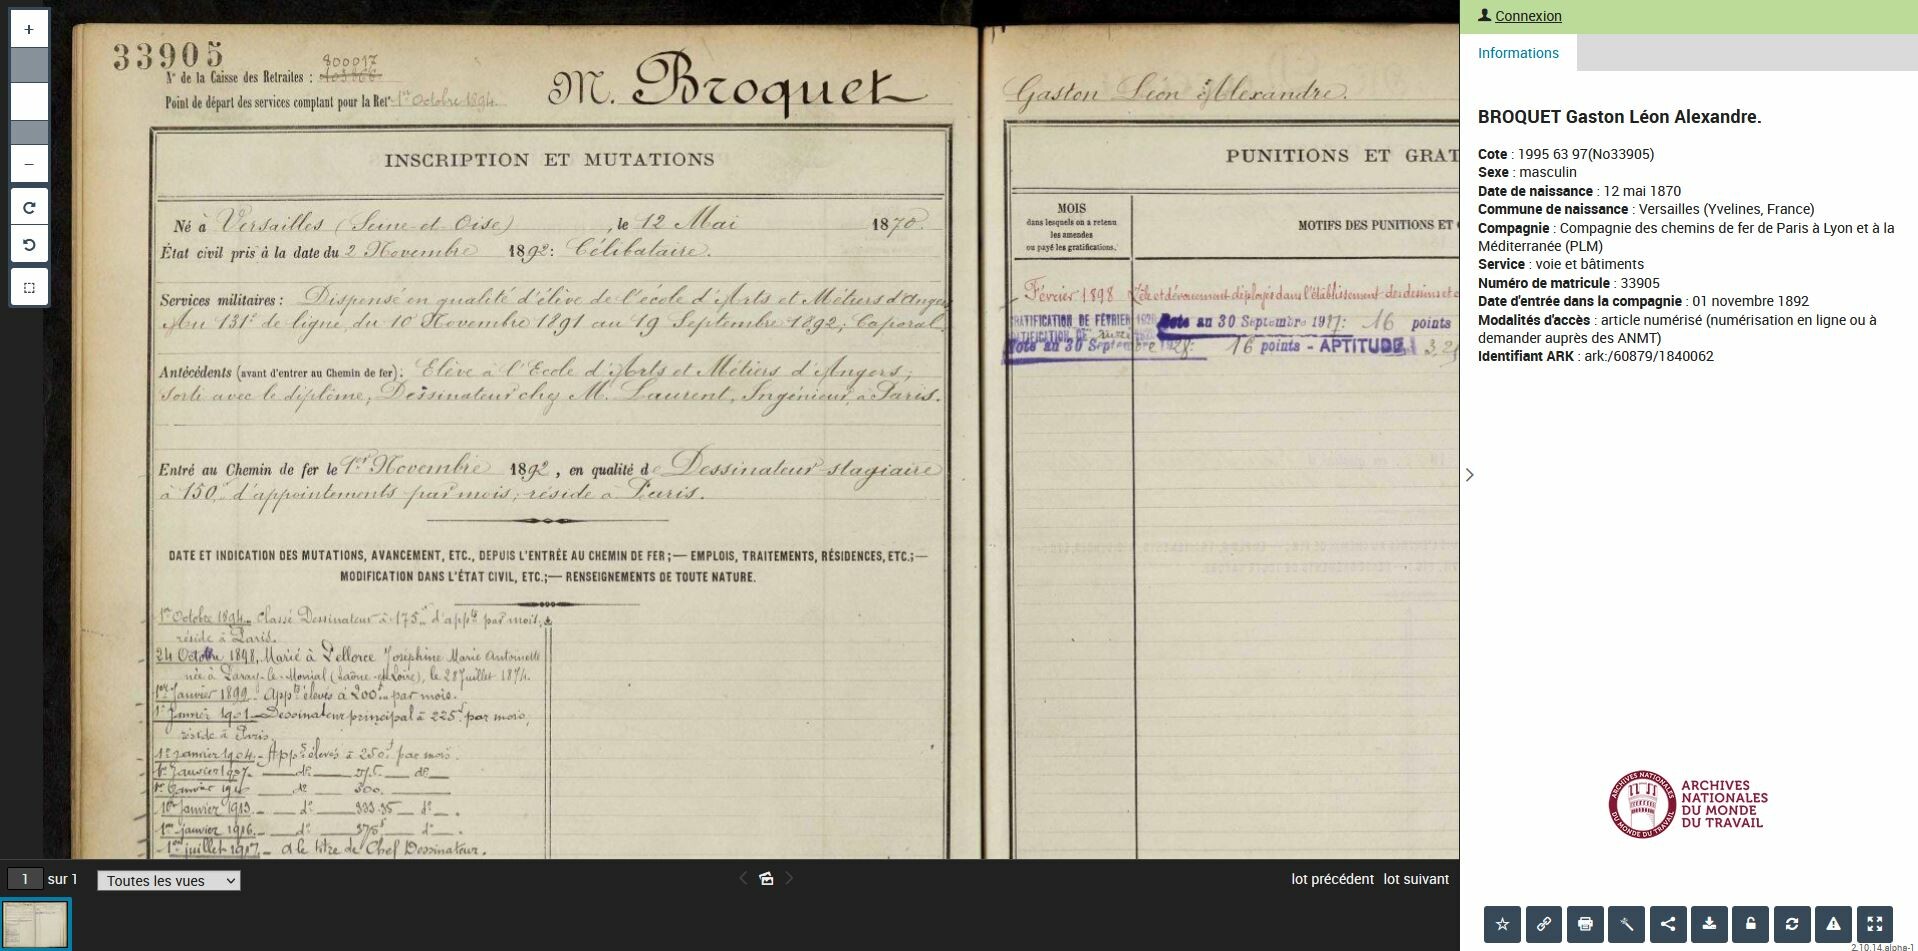 33905
800017
N° de la Caisse des Retraites :
Point de départ des services comptant pour la Ret 1er Octobre 1894.
M. Broquet
Gaston Léon Alexandre.
INSCRIPTION ET MUTATIONS
Né à Versailles (Seine et Oise), le 12 Mai 1870.
État civil pris à la date du 2 Novembre 1892: Célibataire.
Services militaires : Dispensé en qualité d'élève de l'école d'Arts et Métiers d'Angers
Au 131e de ligne, du 10 Novembre 1891 au 19 Septembre 1892; Caporal.
Antécédents (avant d'entrer au Chemin de fer): Elève à l'Ecole d'Arts et Métiers d'Angers;
sorti avec le diplôme; Dessinateur chez M. Laurent, Ingénieur, à Paris.
Entré au Chemin de fer le 1er Novembre 1892, en qualité de Dessinateur stagiaire
à 150f d'appointements par mois; réside à Paris.
DATE ET INDICATION DES MUTATIONS, AVANCEMENT, ETC., DEPUIS L'ENTRÉE AU CHEMIN DE FER;— EMPLOIS, TRAITEMENTS, RÉSIDENCES, ETC.;—
MODIFICATION DANS L'ÉTAT CIVIL, ETC.;— RENSEIGNEMENTS DE TOUTE NATURE.
1er Octobre 1894. Classé Dessinateur à 175f d'appts par mois.
réside à Paris.
24 Octobre 1898, Marié à Pellorce Joséphine Marie Antoinette
née à Paray-le-Monial (Saône-et-Loire), le 28 Juillet 1874.
1er Janvier 1899. Appts élevés à 200f par mois.
1er Janvier 1901. Dessinateur principal à 225f par mois,
réside à Paris.
1er janvier 1904. - Appts élevés à 250f par mois.
1er Janvier 1907. — do — 275. — do —
1er Janvier — do — 300. —
1er Janvier 1913. — do — 333.35 — do — .
1er janvier 1916. — do — 375f — do — .
1er juillet 1917. — a le titre de Chef Dessinateur.
PUNITIONS ET GRAT
MOIS
dans lesquels on a retenu
les amendes
ou payé les gratifications.
MOTIFS DES PUNITIONS ET
Février 1898 Zèle et dévouement déployés dans l'établissement des dessins et
GRATIFICATION DE FÉVRIER
Note au 30 Septembre 1917: 16 points
Note au 30 Septembre 16 points - APTITUDE
Connexion
Informations
BROQUET Gaston Léon Alexandre.
Cote : 1995 63 97(No33905)
Sexe : masculin
Date de naissance : 12 mai 1870
Commune de naissance : Versailles (Yvelines, France)
Compagnie : Compagnie des chemins de fer de Paris à Lyon et à la
Méditerranée (PLM)
Service : voie et bâtiments
Numéro de matricule : 33905
Date d'entrée dans la compagnie : 01 novembre 1892
Modalités d'accès : article numérisé (numérisation en ligne ou à
demander auprès des ANMT)
Identifiant ARK : ark:/60879/1840062
ARCHIVES NATIONALES
DU MONDE DU TRAVAIL
ARCHIVES
NATIONALES
DU MONDE
DU TRAVAIL
1 sur 1
Toutes les vues
lot précédent lot suivant
2.10.14.alpha-1